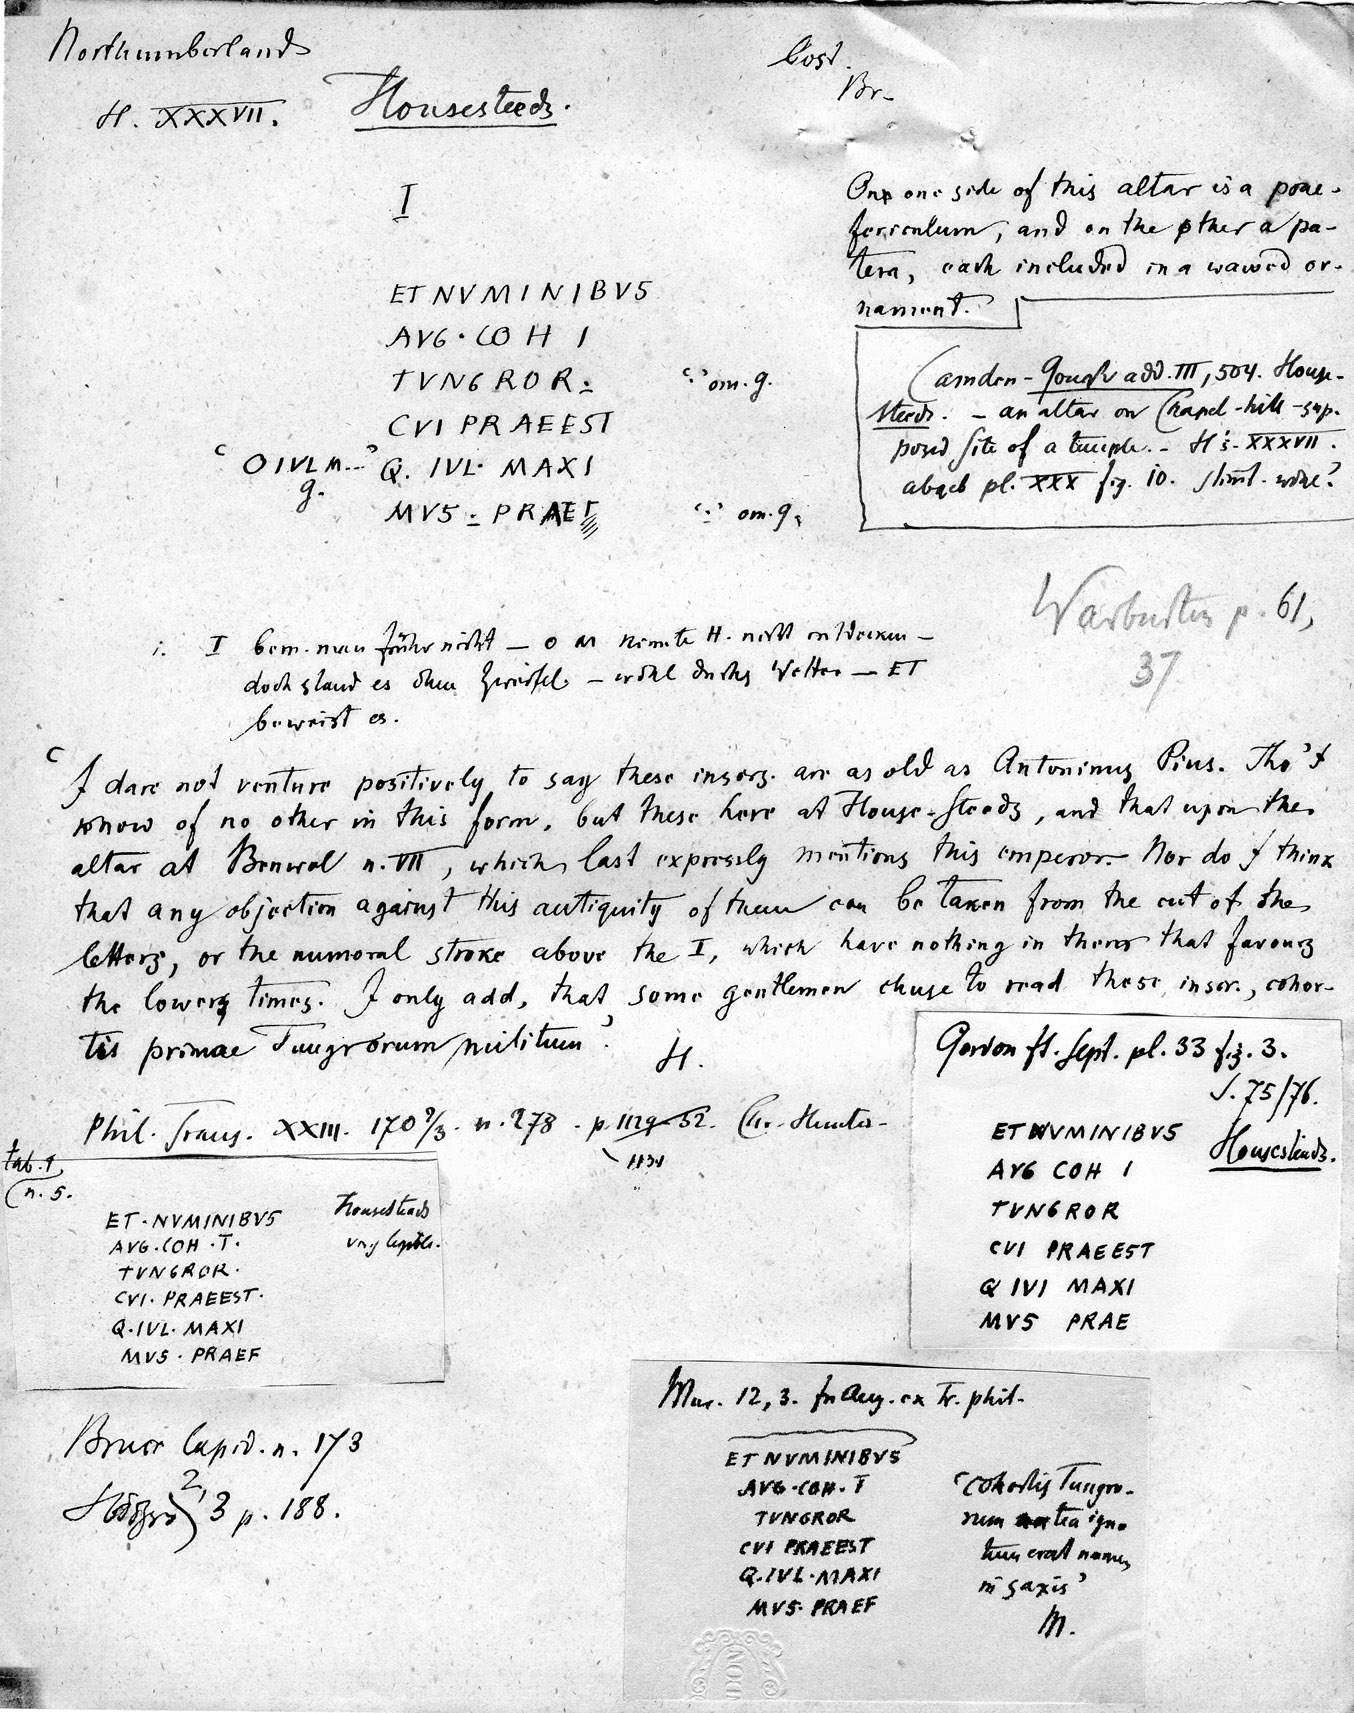 Northumberland
Cost.
Br.
H. XXXVII. Housesteeds.
I
ET NVMINIBVS
AVG · COH I
TVNGROR .
CVI PRAEEST
Q. IVL · MAXI
MVS . PRAEF
‘·’ om. g.
‘OIVLM...’
g.
‘·’ om. g.
On one side of this altar is a prae-
fericulum, and on the other a pa-
tera, each included in a waved or-
nament.
Camden-Gough add. III, 504. House-
steeds. – an altar on Chapel-hill – sup-
posed site of a temple. – H's XXXVII.
pl. XXX fig. 10.
Warburton p. 61,
37
1. I
doch stand es ohne Zweifel – wohl – ET
beweist es.
‘I dare not venture positively to say these inscrs. are as old as Antoninus Pius. Tho' I
know of no other in this form, but these here at House-Steeds, and that upon the
altar at Benwel n. VII, which last expressly mentions this emperor. Nor do I think
that any objection against this antiquity of them can be taken from the cut of the
letters, or the numeral stroke above the I, which have nothing in them that favours
the lower times. I only add, that some gentlemen chuse to read these inscr., cohor-
tis primae Tungrorum militum’.
H.
Phil. Trans. XXIII. 170 2/3. n. 278. p. 1129-32. Chr. Hunter
1131
tab. 1
n. 5.
ET · NVMINIBVS
AVG · COH · T ·
TVNGROR ·
CVI · PRAEEST ·
Q · IVL · MAXI
MVS · PRAEF
Housesteads
very legible.
Gordon It. Sept. pl. 33 fig. 3.
S. 75/76.
Housesteads.
ET NVMINIBVS
AVG COH I
TVNGROR
CVI PRAEEST
Q IVI MAXI
MVS PRAE
Bruce Lapid. n. 173
2, 3 p. 188.
Mur. 12, 3. In Ang. ex tr. phil.
ET NVMINIBVS
AVG · COH · T
TVNGROR
CVI PRAEEST
Q · IVL · MAXI
MVS · PRAEF
‘Cohortis Tungro-
rum antea igno
tum erat nomen
in saxis’
M.